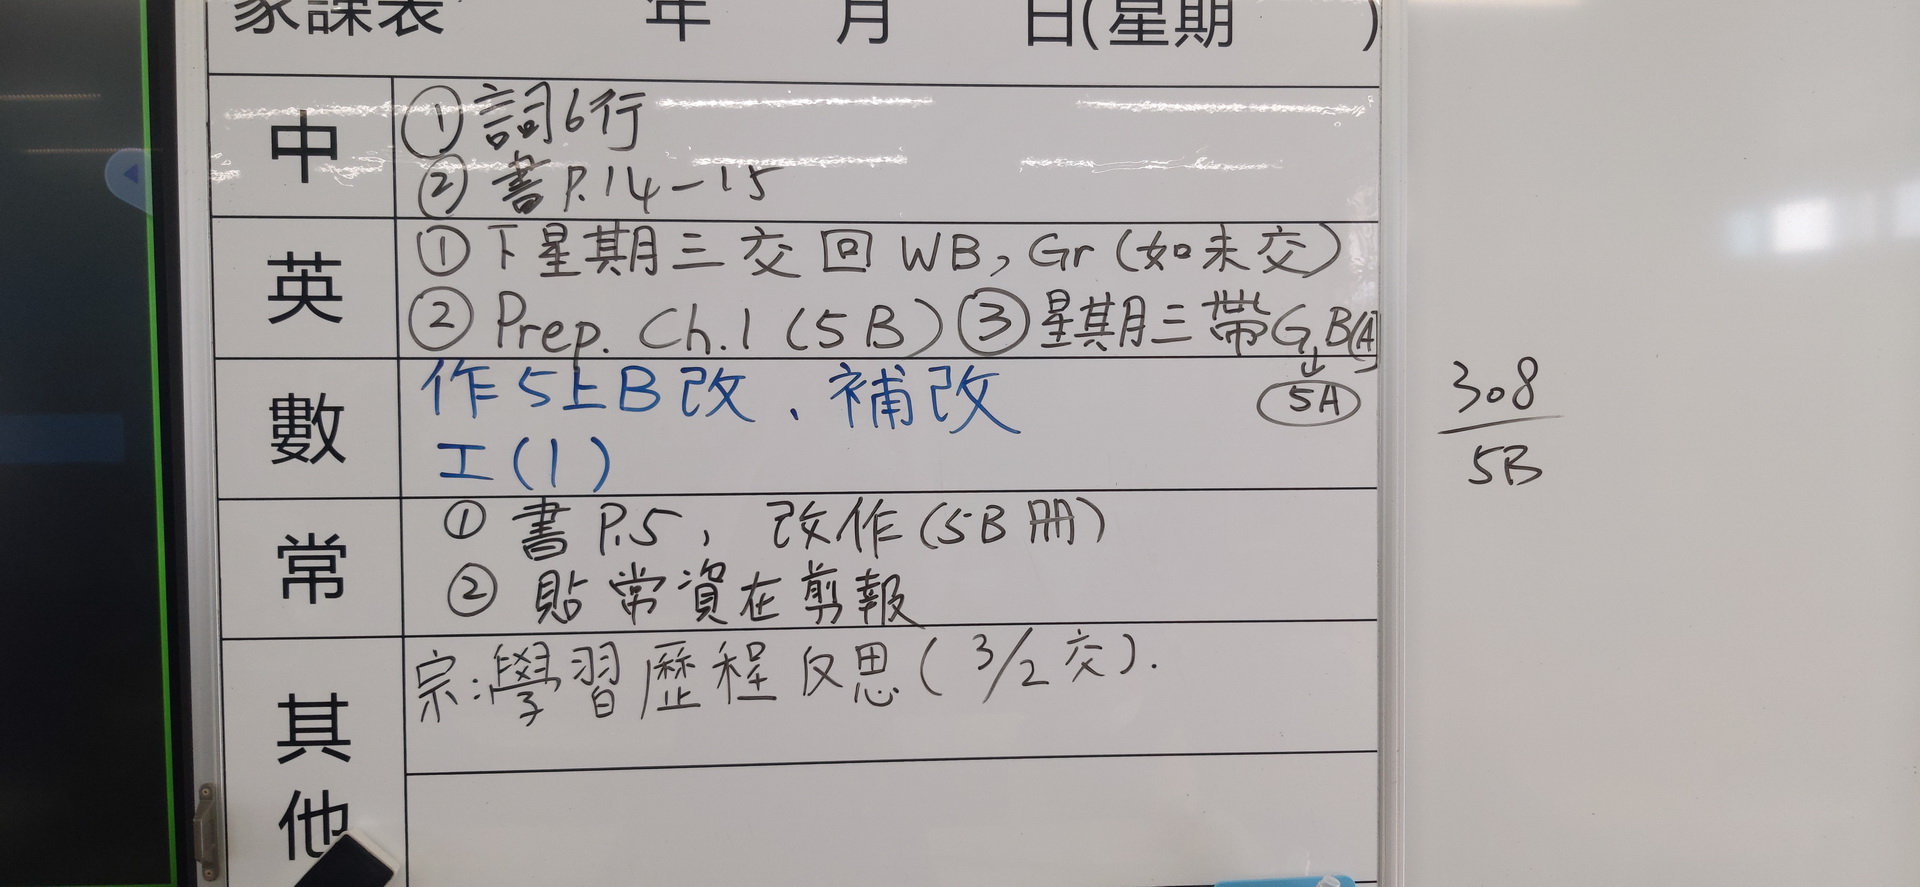 家課表 年 月 日(星期 )
中
①詞6行
②書P.14-15
英
①下星期三交回WB, Gr(如未交)
②Prep. Ch.1 (5B) ③星期三帶G.B(A)
5A
數
作5上B改、補改
工(1)
常
①書P.5, 改作(5B冊)
②貼常資在剪報
其他
宗:學習歷程反思(3/2交).
308
5B